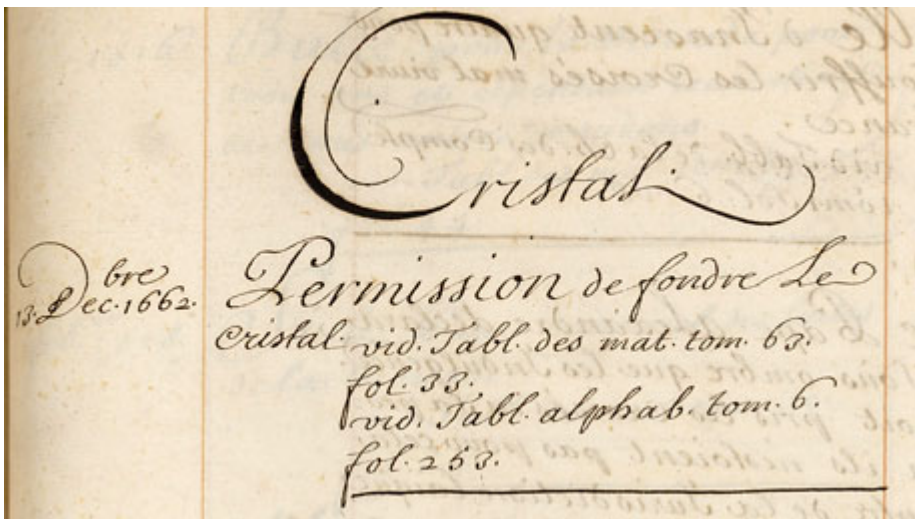 Cristal.
13. Dec.bre 1662.
Permission de fondre Le
cristal. vid. Tabl. des mat. tom. 63.
fol. 33.
vid. Tabl. alphab. tom. 6.
fol. 253.